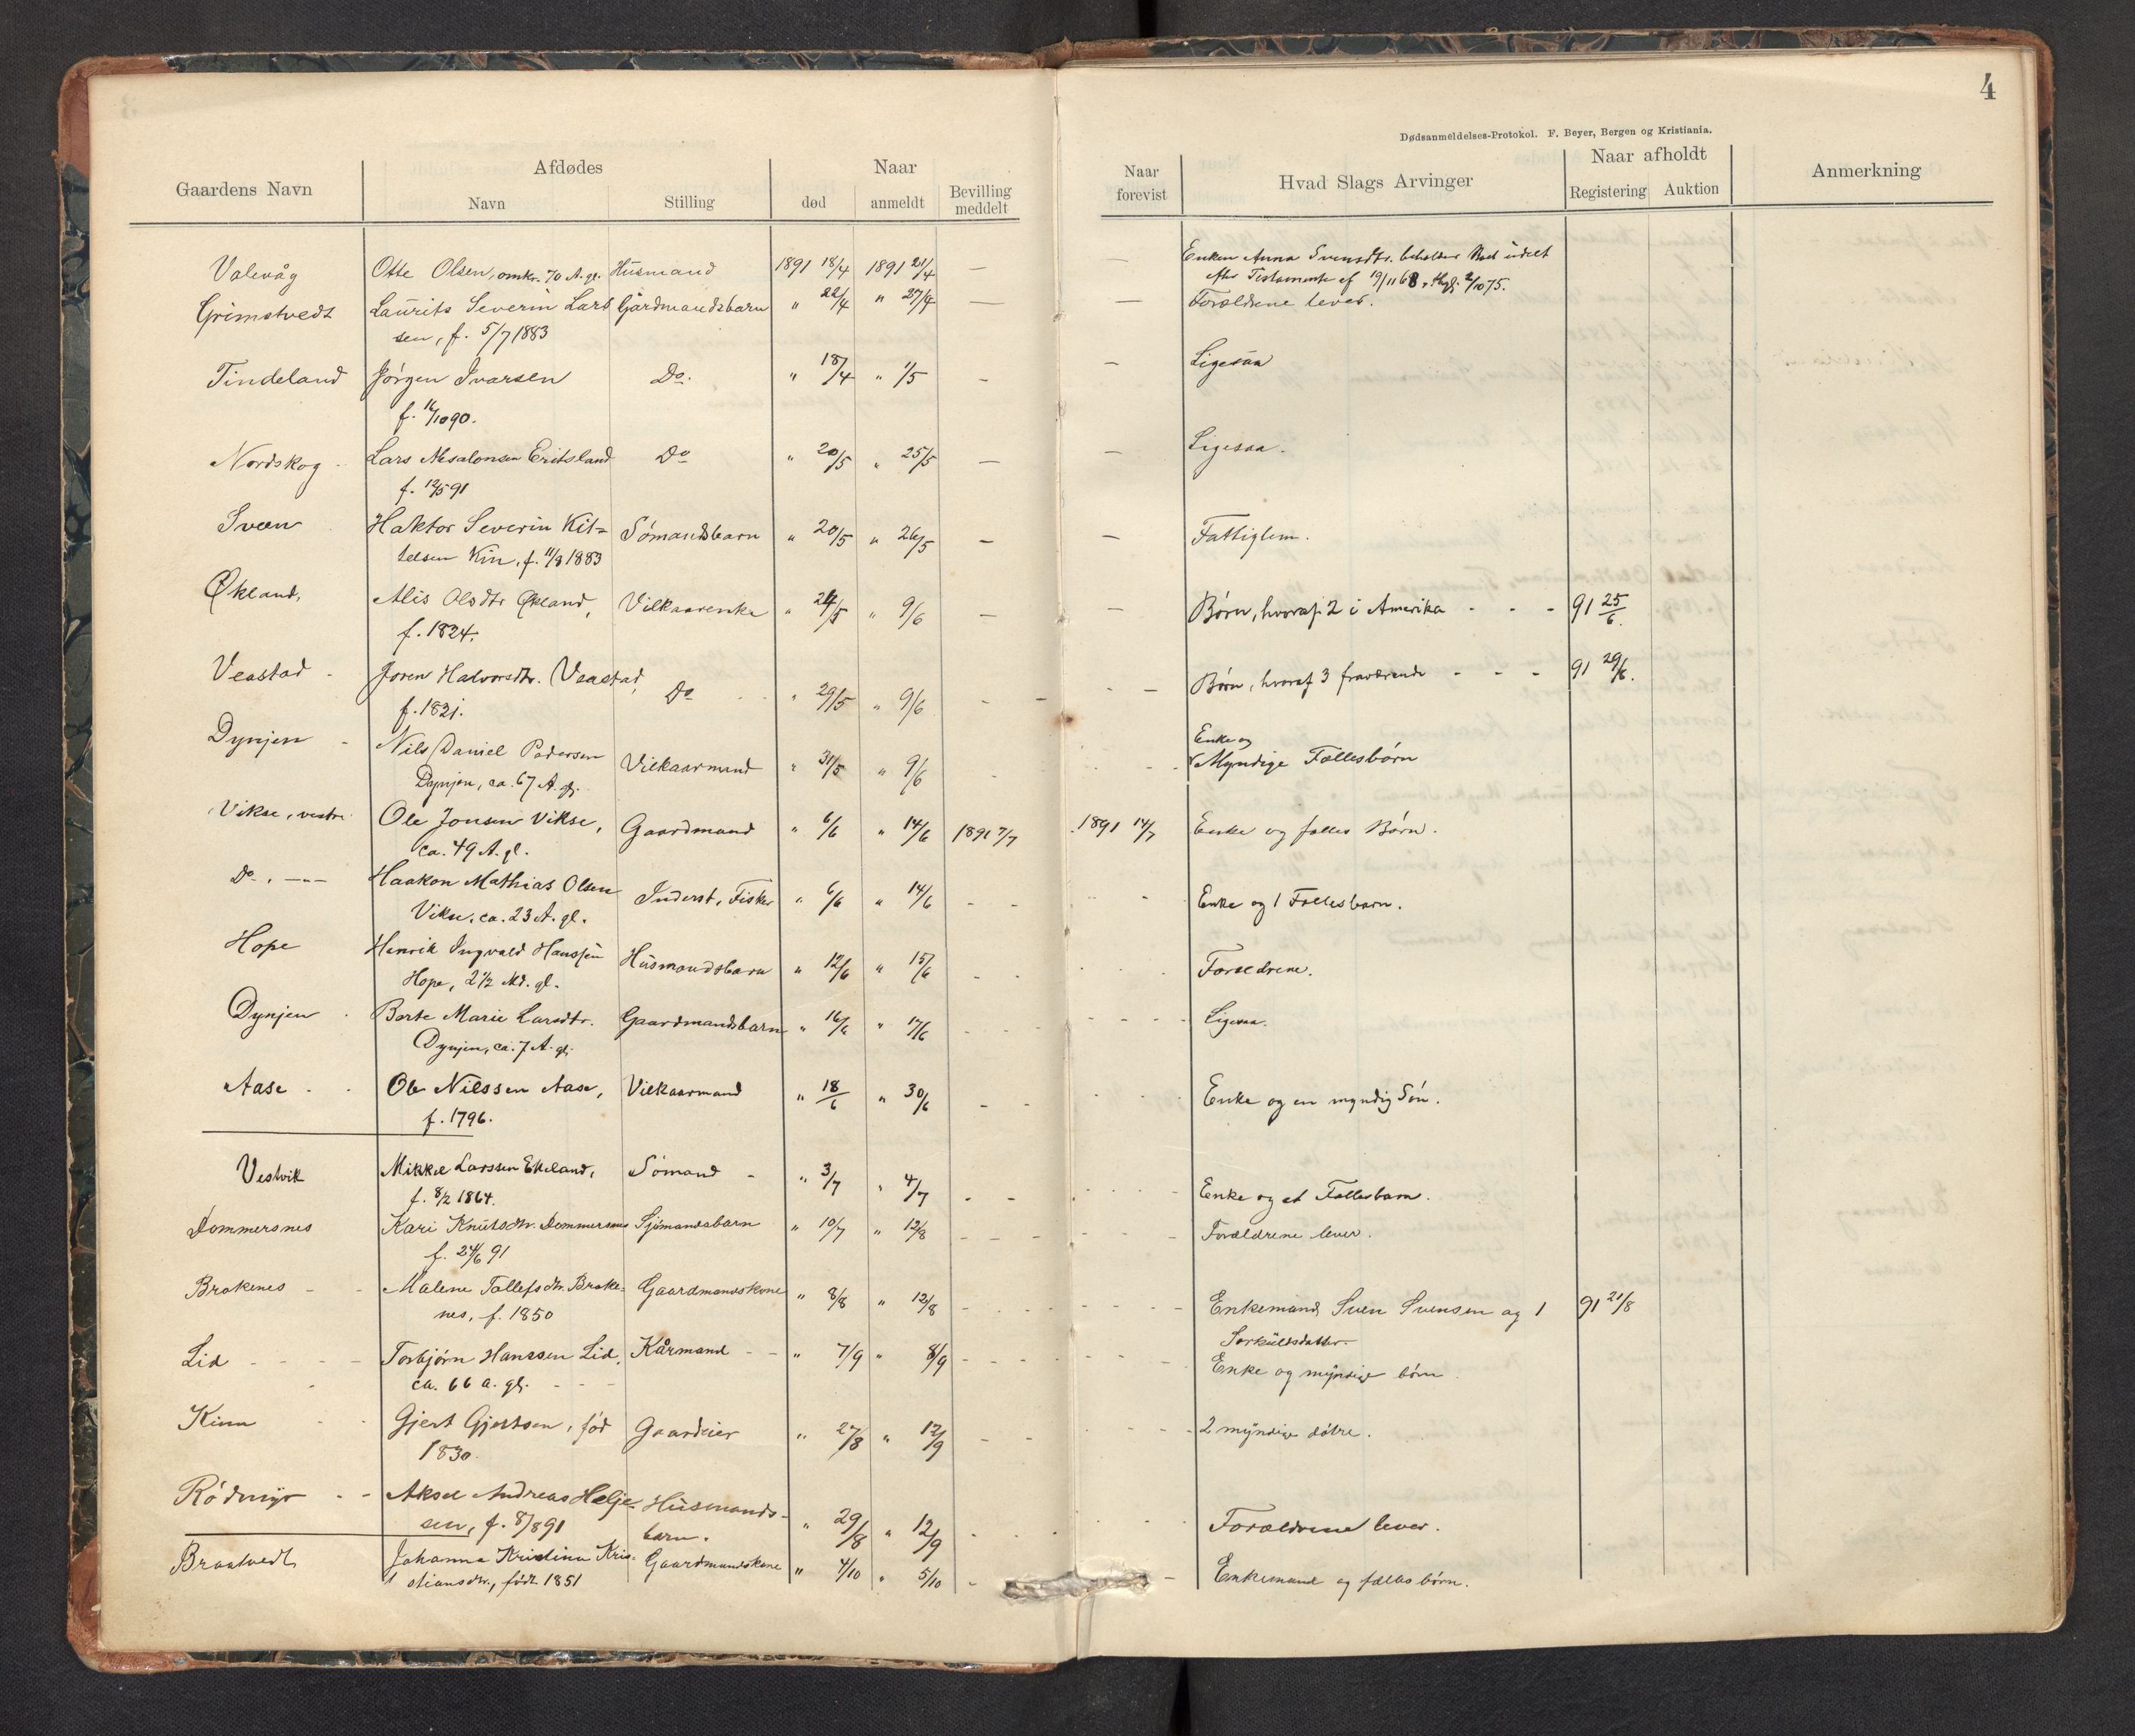 4
Dødsanmeldelses-Protokol. F. Beyer, Bergen og Kristiania.
Gaardens Navn
Afdødes
Navn
Stilling
Naar
død
anmeldt
Bevilling
meddelt
Naar
forevist
Hvad Slags Arvinger
Naar afholdt
Registering
Auktion
Anmerkning
Valevåg Otte Olsen, omkr. 70 A. gl. Husmand 1891 18/4 1891 21/4 — — Enken Anna Svensdtr. beholder Boet udelt
efter Testamente af 19/11 68, thgl. 2/10 75.
Grimstvedt Laurits Severin Lars Gårdmandsbarn " 22/4 " 27/4 — — Forældrene lever.
sen, f. 5/7 1883
Tindeland Jørgen Ivarsen Do. " 18/4 " 1/5 — — Ligesaa
f. 16/10 90.
Nordskog Lars Absalonsen Eritsland Do " 20/5 " 25/5 — — Ligesaa.
f. 12/5 91
Sveen Haktor Severin Kit= Sömandsbarn " 20/5 " 26/5 — — Fattiglem.
telsen Kin, f. 11/3 1883
Økland, Alis Olsdtr Økland, Vilkaarenke " 24/5 " 9/6 — — Börn, hvoraf 2 i Amerika - - - 91 25/6.
f. 1824.
Veastad - Joren Halvorsdtr. Veastad, Do " 29/5 " 9/6 - — Börn, hvoraf 3 fraværende - - - 91 29/6.
f. 1821.
Dynjen - Nils Daniel Pedersen Vilkaarmand " 31/5 " 9/6 - - Enke og
Myndige Fællesbörn
Dynjen, ca. 67 A. gl.
Vikse, vestre Ole Jonsen Vikse, Gaardmand " 6/6 " 14/6 1891 7/7 1891 14/7 Enke og fælles Börn.
ca. 49 A. gl.
Do. , --- Haakon Mathias Olsen Inderst, Fisker " 6/6 " 14/6 - - Enke og 1 Fællesbarn.
Vikse, ca. 23 A. gl.
Hope Henrik Ingvald Hanssen Husmandsbarn " 12/6 " 15/6 - - Forældrene.
Hope, 2 1/2 Md. gl.
Dynjen Berte Marie Larsdtr. Gaardmandsbarn " 16/6 " 17/6 - - - Ligesaa.
Dynjen, ca. 7 A. gl.
Aase Ole Nilssen Aase, Vilkaarmand " 18/6 " 30/6 - - Enke og en myndig Sön.
f. 1796.
Vestvik Mikkel Larssen Ekeland, Sömand - " 3/7 " 4/7 - - Enke og et Fællesbarn.
f. 8/2 1864.
Dommersnes Kari Knutsdtr. Dommersnes Sjömandsbarn " 10/7 " 12/8 - - - Forældrene lever.
f. 24/6 91
Brakenes - - Malene Tollefsdtr. Brake= Gaardmandskone " 8/8 " 12/8 - - - Enkemand Sven Svensen og 1 91 21/8
Særkuldsdatter.
nes, f. 1850
Lid - - - Torbjørn Hanssen Lid, Kårmand - - " 7/9 " 8/9 - - - Enke og myndige börn.
ca. 66 a. gl. - - -
Kinn Gjert Gjertsen, föd Gaardeier " 27/8 " 12/9 - - 2 myndige dötre.
1830.
Rödmyr - - Aksel Andreas Helje= Husmands- " 29/8 " 12/9 - - Forældrene lever.
sen, f. 8/8 91 barn.
Braatvedt Johanna Kristina Kris- Gaardmandskone " 4/10 " 5/10 - - Enkemand og fælles börn.
stiansdtr., födt 1851